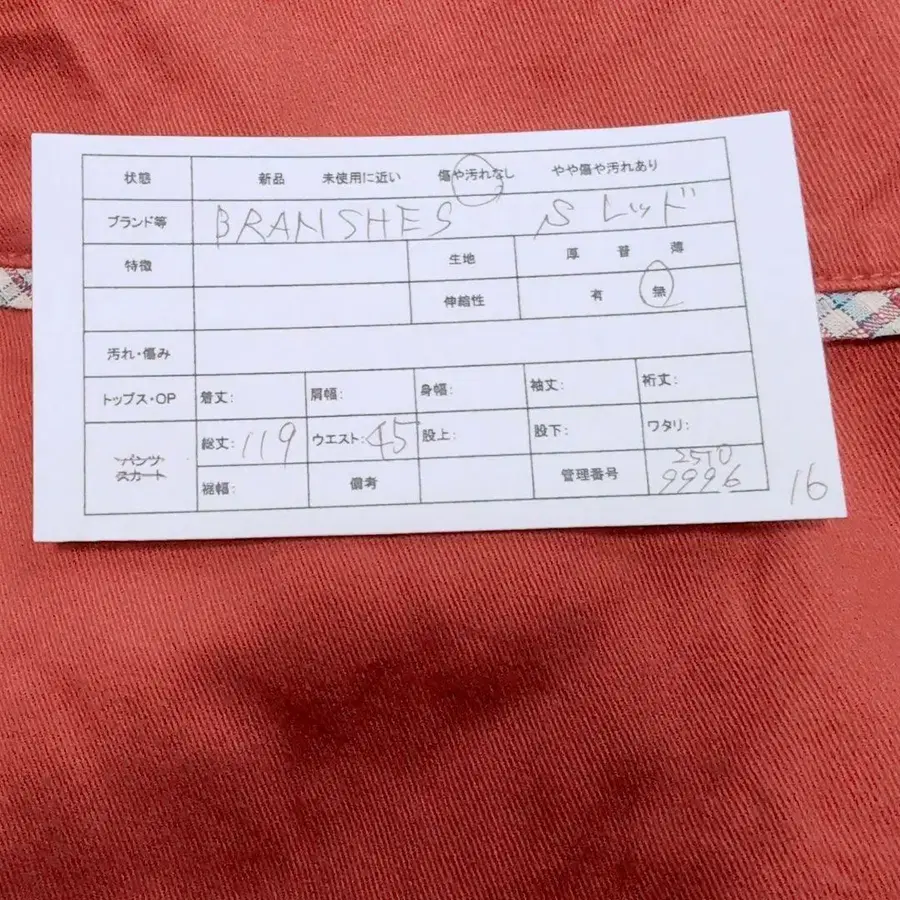 状態 新品 未使用に近い 傷や汚れなし やや傷や汚れあり
ブランド等 BRANSHES S レッド
特徴 生地 厚 普 薄
伸縮性 有 無
汚れ・傷み
トップス・OP 着丈: 肩幅: 身幅: 袖丈: 裄丈:
パンツ 総丈: 119 ウエスト: 45 股上: 股下: ワタリ:
スカート 裾幅: 備考 管理番号 2510
9996
16